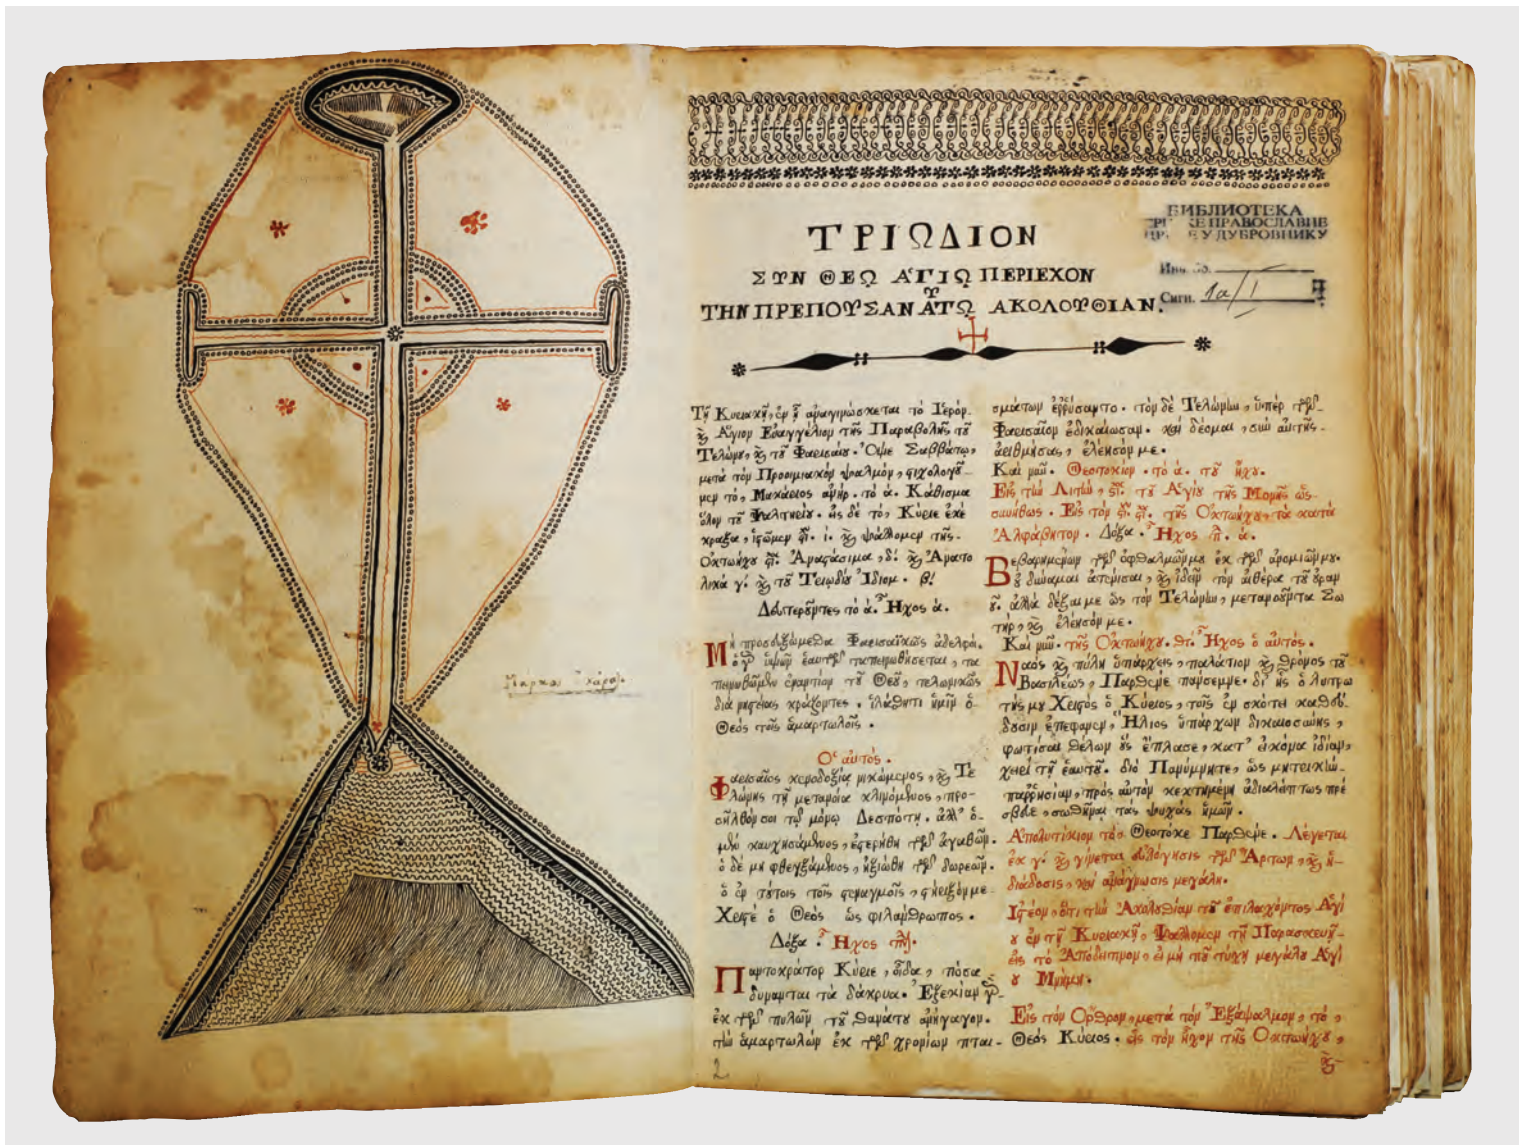 ΤΡΙΩΔΙΟΝ
ΣΥΝ ΘΕΩ ΑΓΙΩ ΠΕΡΙΕΧΟΝ
ΤΗΝ ΠΡΕΠΟΥΣΑΝ ΑΥΤΩ ΑΚΟΛΟΥΘΙΑΝ.
БИБЛИОТЕКА
ПРАВОСЛАВНЕ
У ДУБРОВНИКУ
Инв. бр.
Сигн. 1a/I
Τῇ Κυριακῇ, ἐν ᾗ ἀναγινώσκεται τὸ Ἱερόν
ϗ Ἅγιον Εὐαγγέλιον τῆς Παραβολῆς τοῦ
Τελώνου, ϗ τοῦ Φαρισαίου. Ὀψὲ Σαββάτῳ,
μετὰ τὸν Προοιμιακὸν ψαλμὸν, στιχολογοῦ-
μεν τὸ, Μακάριος ἀνήρ. τὸ ά. Κάθισμα
ὅλον τοῦ Ψαλτηρίου. εἰς δὲ τὸ, Κύριε ἐκέ
κραξα, ἱστῶμεν στί. ι. ϗ ψάλλομεν τῆς
Ὀκτωήχου στι. Ἀναστάσιμα, δ. ϗ Ἀνατο
λικὰ γ. ϗ τοῦ Τριῳδίου Ἰδιομ. β.
Δευτεροῦντες τὸ ά. Ἦχος ά.
Μὴ προσευξώμεθα Φαρισαϊκῶς ἀδελφοί.
ὁ γὰρ ὑψῶν ἑαυτὸν ταπεινωθήσεται, τα
πεινωθῶμεν ἐναντίον τοῦ Θεοῦ, τελωνικῶς
διὰ νηστείας κράζοντες. ἱλάσθητι ἡμῖν ὁ
Θεὸς τοῖς ἁμαρτωλοῖς.
Ὁ αὐτός.
Φαρισαῖος κενοδοξίᾳ νικώμενος, ϗ Τε
λώνης τῇ μετανοίᾳ κλινόμενος, προ-
σῆλθόν σοι τῷ μόνῳ Δεσπότῃ. ἀλλ' ὁ
μὲν καυχησάμενος, ἐστερήθη τῶν ἀγαθῶν.
ὁ δὲ μὴ φθεγξάμενος, ἠξιώθη τῶν δωρεῶν.
ὁ ἐν τούτοις τοῖς στεναγμοῖς, στήριξόν με
Χριστὲ ὁ Θεὸς ὡς φιλάνθρωπος.
Δόξα. Ἦχος πλ.
Παντοκράτορ Κύριε, οἶδα, πόσα
δύνανται τὰ δάκρυα. Ἐζεκίαν γὰρ
ἐκ τῶν πυλῶν τοῦ θανάτου ἀνήγαγον.
τὴν ἁμαρτωλὸν ἐκ τῶν χρονίων πται-
2
σμάτων ἐρρύσαντο. τὸν δὲ Τελώνην, ὑπὲρ τὸν
Φαρισαῖον ἐδικαίωσαν. καὶ δέομαι, σὺν αὐτοῖς
ἀριθμήσας, ἐλέησόν με.
Καὶ νῦν. Θεοτοκίον. τὸ ά. τοῦ ἤχου.
Εἰς τὴν Λιτὴν, στι. τοῦ Ἁγίου τῆς Μονῆς ὡς
συνήθως. Εἰς τὸν στι. στι. τῆς Ὀκτωήχου, τὰ κατὰ
Ἀλφάβητον. Δόξα. Ἦχος πλ. ά.
Βεβαρημένων τῶν ὀφθαλμῶν μου ἐκ τῶν ἀνομιῶν μου.
οὐ δύναμαι ἀτενίσαι, ϗ ἰδεῖν τὸν αἰθέρα τοῦ οὐραν
οῦ. ἀλλὰ δέξαι με ὡς τὸν Τελώνην, μετανοοῦντα Σω
τὴρ, ϗ ἐλέησόν με.
Καὶ νῦν. τῆς Ὀκτωήχου. Θτ. Ἦχος ὁ αὐτός.
Ναὸς ϗ πύλη ὑπάρχεις, παλάτιον ϗ θρόνος τοῦ
Βασιλέως, Παρθένε πάνσεμνε. δι' ἧς ὁ λυτρω
τής μου Χριστὸς ὁ Κύριος, τοῖς ἐν σκότει καθεύ
δουσιν ἐπέφανεν, Ἥλιος ὑπάρχων δικαιοσύνης,
φωτίσαι θέλων οὓς ἔπλασε, κατ' εἰκόνα ἰδίαν,
χειρὶ τῇ ἑαυτοῦ. διὸ Πανύμνητε, ὡς μητρικὴν
παρρησίαν, πρὸς αὐτὸν κεκτημένη ἀδιαλείπτως πρέ
σβευε, σωθῆναι τὰς ψυχὰς ἡμῶν.
Ἀπολυτίκιον τὸ, Θεοτόκε Παρθένε. Λέγεται
ἐκ γ. ϗ γίνεται εὐλόγησις τῶν Ἄρτων, ϗ ἡ
διάδοσις, καὶ ἀνάγνωσις μεγάλη.
Ἰστέον, ὅτι τὴν Ἀκολουθίαν τοῦ ἐπιλαχόντος Ἁγί
ου ἐν τῇ Κυριακῇ, Ψάλλομεν τῇ Παρασκευῇ
εἰς τὸ Ἀπόδειπνον, εἰ μή που τύχῃ μεγάλου Ἁγί
ου Μνήμη.
Εἰς τὸν Ὄρθρον, μετὰ τὸν Ἑξάψαλμον, τὸ,
Θεὸς Κύριος. εἰς τὸν ἦχον τῆς Ὀκτωήχου,
ϗ